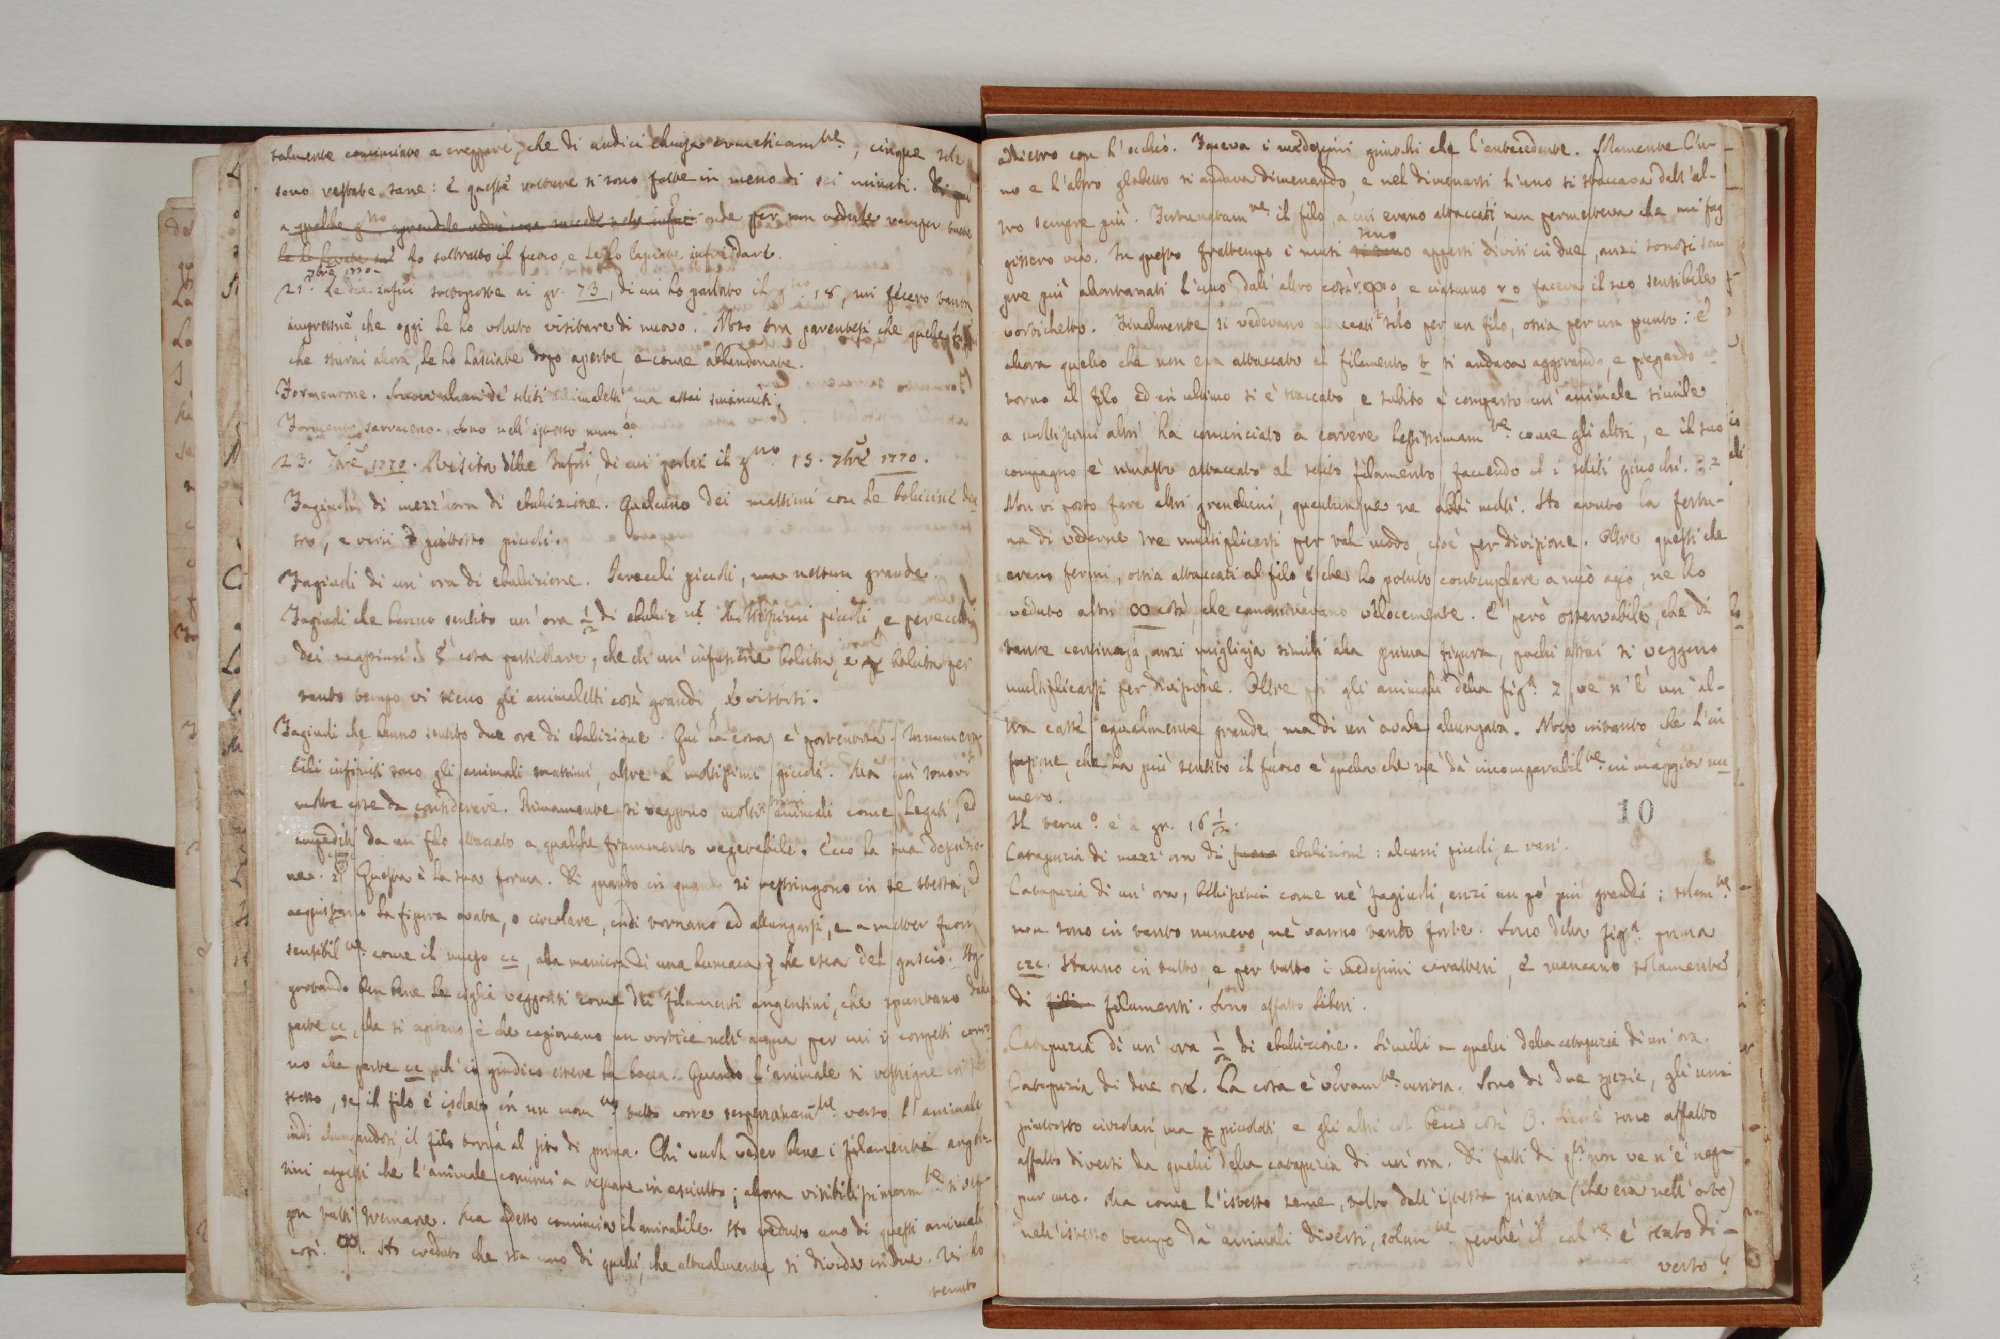 talmente cominciato a creppare, che di undici chiuse ermeticam.te, cinque sole
sono restate sane: e queste rotture si sono fatte in meno di sei minuti.
a qualche onde per non vederle romper tutte
ho sottratto il fuoco, e le ho lasciate infreddare.
21. 7bre 1770. Le due infusi sottoposte ai gr. 73, di cui ho parlato il g.no 18, mi fecero tanta
impressne, che oggi le ho voluto visitare di nuovo. Noto tra parentesi, che quelle
che sturai allora, le ho lasciate dopo aperte, e come abbandonate.
Formentone. de' soliti animaletti, ma assai sminuiti.
Formento sarraceno. Sono nell'istesso num.o
23. 7bre 1770. Visita delle Infusi, di cui parlai il g.no 15. 7bre 1770.
Fagiuoli di mezz'ora di ebulizione. Qualcuno dei massimi con le bolicine
tro, e varii piuttosto piccoli.
Fagiuoli di un'ora di ebulizione. Parecchi piccoli, ma nessun grande.
Fagiuoli che hanno sentito un'ora 1/2 di ebulizne Moltissimi piccoli, e parecchi
dei massimi. È cosa particolare, che di un'infusione bolita, e bolita per
tanto tempo vi sieno gli animaletti così grandi, e vistosi.
Fagiuoli che hanno sentito due ore di ebulizione. Quì la cosa è portentosa. Innumera
bili infiniti sono gli animali massimi, oltre a moltissimi piccoli. Ma quì sonovi
molte cose da considerare. Primamente si veggono moltissimi animali come legati, ed
impediti da un filo attaccato a qualche frammento vegetabile. Ecco la sua descrizio-
ne. Questa è la sua forma. Di quando in quando si restringono in se stessi, ed
acquistano la figura ovata, o circolare, indi tornano ad allungarsi, e a metter fuori
sensibil.te come il muso cc, alla maniera di una lumaca che esca del guscio.
guatando ben bene le ciglia veggonsi come dei filamenti argentini, che spuntano dalla
parte cc, che si agitano e che cagionano un vortice nell'acqua per cui i corpetti
no alla parte cc, ch'io giudico essere la bocca. Quando l'animale si restrigne in se
stesso, se il filo è isolato in un mom.to tutto corre serpeggiam.te verso l'animale
indi allungandosi, il filo torna al sito di prima. Chi vuol veder bene i filamenti argen
tini, aspetti che l'animale cominci a restare in asciutto; allora visibilissimam.te si veg
gon tutti tremare. Ma adesso comincia il mirabile. Ho veduto uno di questi animali
così. Ho creduto che sia uno di quelli, che attualmente si divide in due. Vi ho
tenuto
addietro con l'occhio. Faceva i medesimi giuochi che l'antecedente. Solamente l'u-
no e l'altro globetto si andava dimenando, e nel dimenarsi l'uno si staccava dall'al-
tro sempre più. Fortunatam.te il filo, a cui erano attaccati, non permetteva che mi fug
gissero via. In questo frattempo i musi sonosi appena divisi in due, anzi sonosi sem
pre più allontanati l'uno dall'altro così, e ciascuno r o faceva il suo sensibile
vortichetto. Finalmente si vedevano attaccati solo per un filo, ossia per un punto: e
allora quello che non era attaccato al filamento b si andava aggirando, e piegando at-
torno al filo ed in ultimo si è staccato, e subito è comparso un'animale simile
a moltissimi altri ha cominciato a correre lestissimam.te come gli altri, e il suo
compagno è rimasto attaccato al solito filamento, facendo i soliti giuochi.
Non vi posso fare altri grandicini, quantunque ne abbi molti. Ho avuto la fortu-
na di vederne tre multiplicarsi per tal modo, cioè per divisione. Oltre questi che
erano fermi, ossia attaccati al filo, e che ho potuto contemplare a mio agio, ne ho
veduto altri ∞ così, che camminavano velocemente. È però osservabile, che di
tante centinaja, anzi migliaja simili alla prima figura, pochi assai si veggono
multiplicarsi per divisione. Oltre poi gli animali della fig.a 2 ve n'è un'al-
tra casse egualmente grande, ma di un'ovale allungata. Noto intanto che l'in
fusione, che ha più sentito il fuoco è quella che ne dà incomparabil.te in maggior nu
mero.
Il term.o è a gr. 16 1/2.
10
Catapuzia di mezz'ora di fuoco ebulizioni: alcuni piccoli, e rari.
Catapuzia di un'ora, bellissimi come ne' fagiuoli, anzi un pò più grandi; solam.te
non sono in tanto numero, nè vanno tanto forte. Sono della fig.a prima
czc. Hanno in tutto, e per tutto i medesimi caratteri, e mancano solamente
di fili filamenti. Sono affatto liberi.
Catapuzia di un'ora 1/2 di ebulizione. Simili a quelli della catapuzia di un'ora.
Catapuzia di due ore. La cosa è veram.te curiosa. Sono di due spezie, gli uni
piuttosto circolari, ma piccoletti, e gli altri col becco così sono affatto
affatto diversi da quelli della catapuzia di un'ora. Di fatti di q.sti non ve n'è nep-
pur uno. Ma come l'istesso seme, tolto dall'istessa pianta (che era nell'orto)
nell'istesso tempo dà animali diversi, solam.te perchè il cal.re è stato di-
verso?